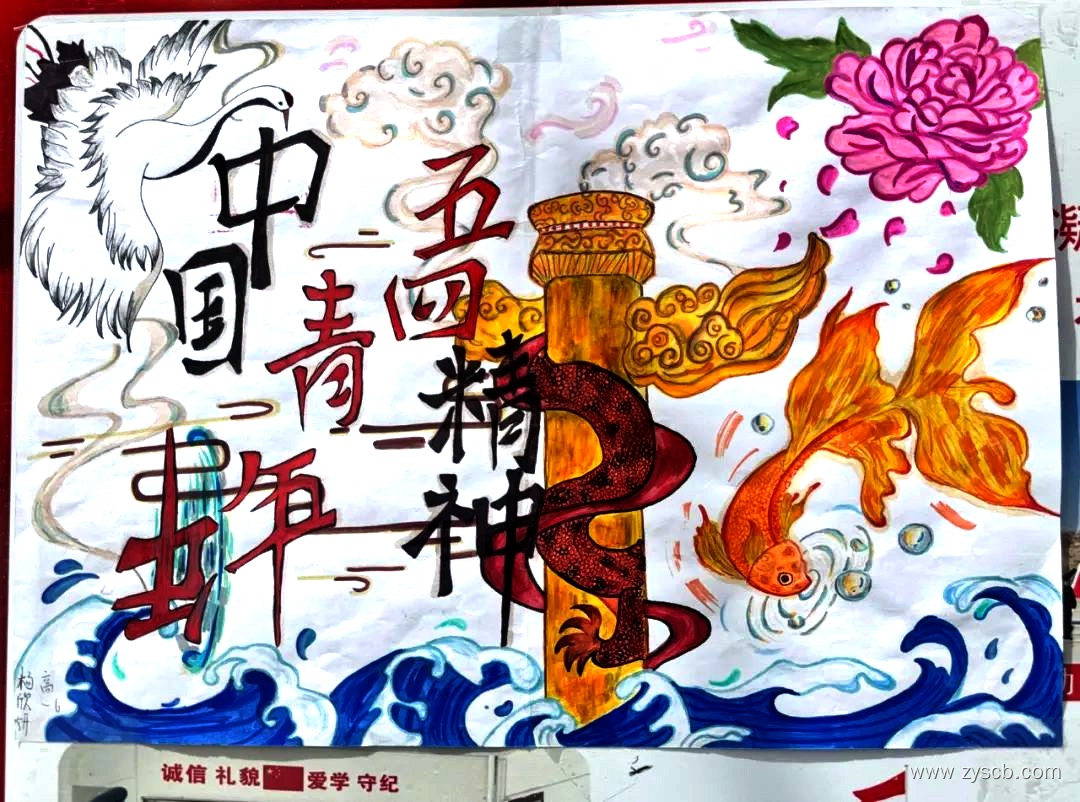 中国
青年
五四
精神
高一6
柏欣妍
凝
诚信 礼貌 爱学 守纪
www.zyscb.com